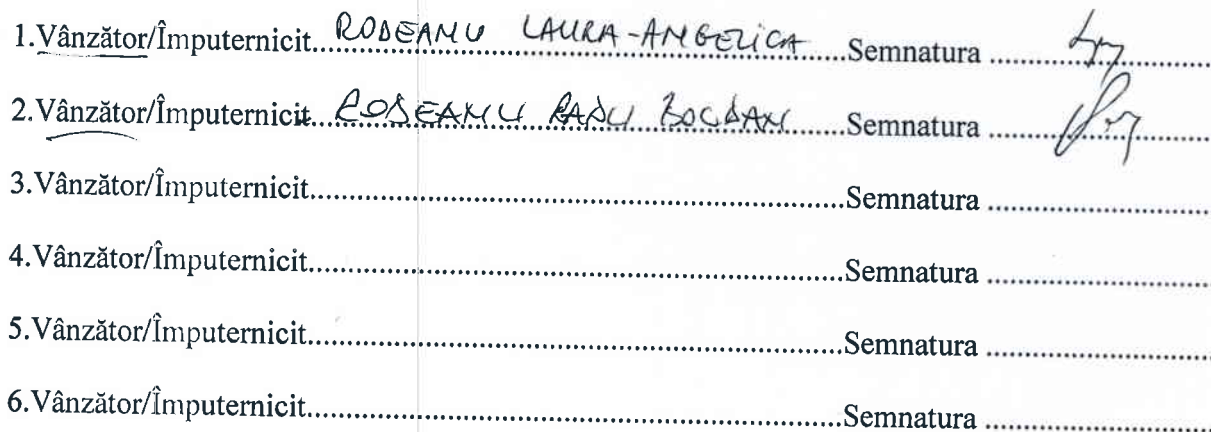 1.Vânzător/Împuternicit....RODEANU LAURA-ANGELICA.....Semnatura ....................
2.Vânzător/Împuternicit....RODEANU RADU BOGDAN......Semnatura ....................
3.Vânzător/Împuternicit................................................................Semnatura ....................
4.Vânzător/Împuternicit................................................................Semnatura ....................
5.Vânzător/Împuternicit................................................................Semnatura ....................
6.Vânzător/Împuternicit................................................................Semnatura ....................